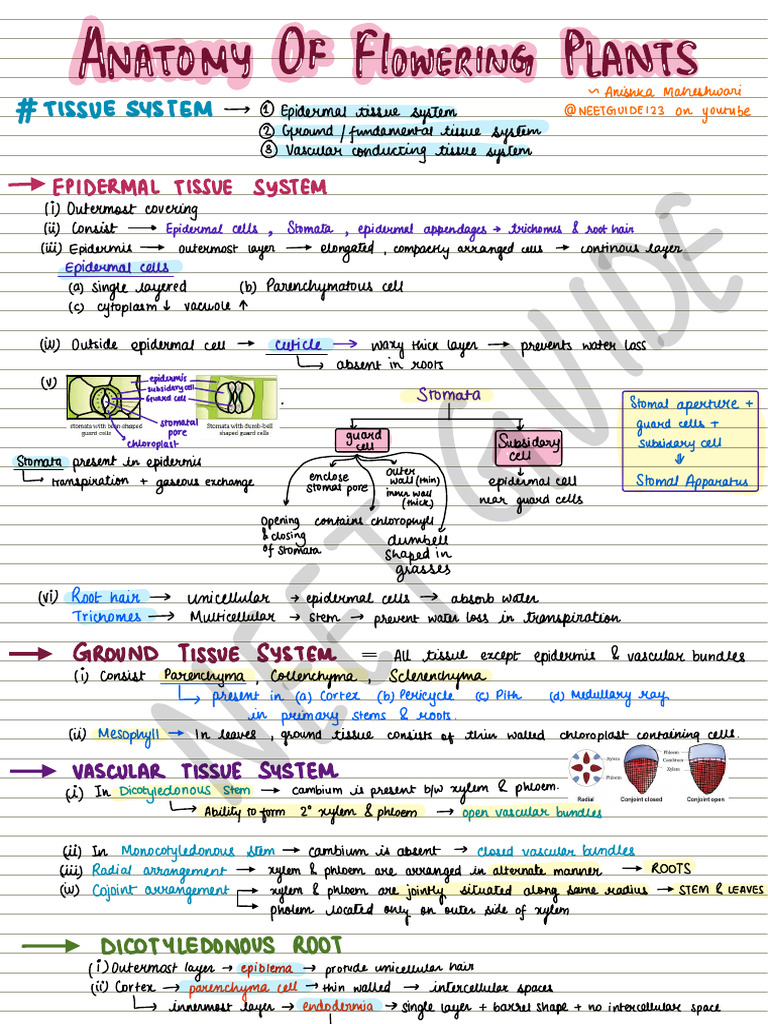 ANATOMY OF FLOWERING PLANTS
~ Anishka Maheshwari
@NEETGUIDE123 on youtube
# TISSUE SYSTEM → ① Epidermal tissue system
② Ground / fundamental tissue system
③ Vascular conducting tissue system
→ EPIDERMAL TISSUE SYSTEM
(i) Outermost covering
(ii) Consist → Epidermal cells, Stomata, epidermal appendages → trichomes & root hair
(iii) Epidermis → outermost layer → elongated, compactly arranged cells → continous layer
Epidermal cells
(a) Single layered (b) Parenchymatous cell
(c) cytoplasm ↓ vacuole ↑
(iv) Outside epidermal cell → cuticle → waxy thick layer → prevents water loss
→ absent in roots
(v)
epidermis
subsidary cell
Guard cell
stomatal pore
chloroplast
stomata with bean-shaped guard cells
Stomata with dumb-bell shaped guard cells
Stomata present in epidermis
→ transpiration + gaseous exchange
Stomata
guard cell
Subsidary cell
enclose stomal pore
outer wall (thin)
inner wall (thick)
epidermal cell near guard cells
Opening & closing of stomata
contains chlorophyll
dumbell shaped in grasses
Stomal aperture +
guard cells +
subsidary cell
⇓
Stomal Apparatus
(vi) Root hair → unicellular → epidermal cells → absorb water
Trichomes → Multicellular → stem → prevent water loss in transpiration
→ GROUND TISSUE SYSTEM = All tissue except epidermis & vascular bundles
(i) Consist Parenchyma, Collenchyma, Sclerenchyma
→ present in (a) Cortex (b) Pericycle (c) Pith (d) Medullary ray
in primary stems & roots.
(ii) Mesophyll → In leaves, ground tissue consists of thin walled chloroplast containing cells.
→ VASCULAR TISSUE SYSTEM
Xylem
Phloem
Radial
Phloem
Cambium
Xylem
Conjoint closed
Conjoint open
(i) In Dicotyledonous Stem → cambium is present b/w xylem & phloem.
→ Ability to form 2° xylem & phloem → open vascular bundles
(ii) In Monocotyledonous stem → cambium is absent → closed vascular bundles
(iii) Radial arrangement → xylem & phloem are arranged in alternate manner → ROOTS
(iv) Cojoint arrangement → xylem & phloem are jointly situated along same radius → STEM & LEAVES
→ pholem located only on outer side of xylem
→ DICOTYLEDONOUS ROOT
(i) Outermost layer → epiblema → protude unicellular hair
(ii) Cortex → parenchyma cell → thin walled → intercellular spaces
→ innermost layer → endodermia → single layer + barrel shape + no intercellular space
NEET GUIDE